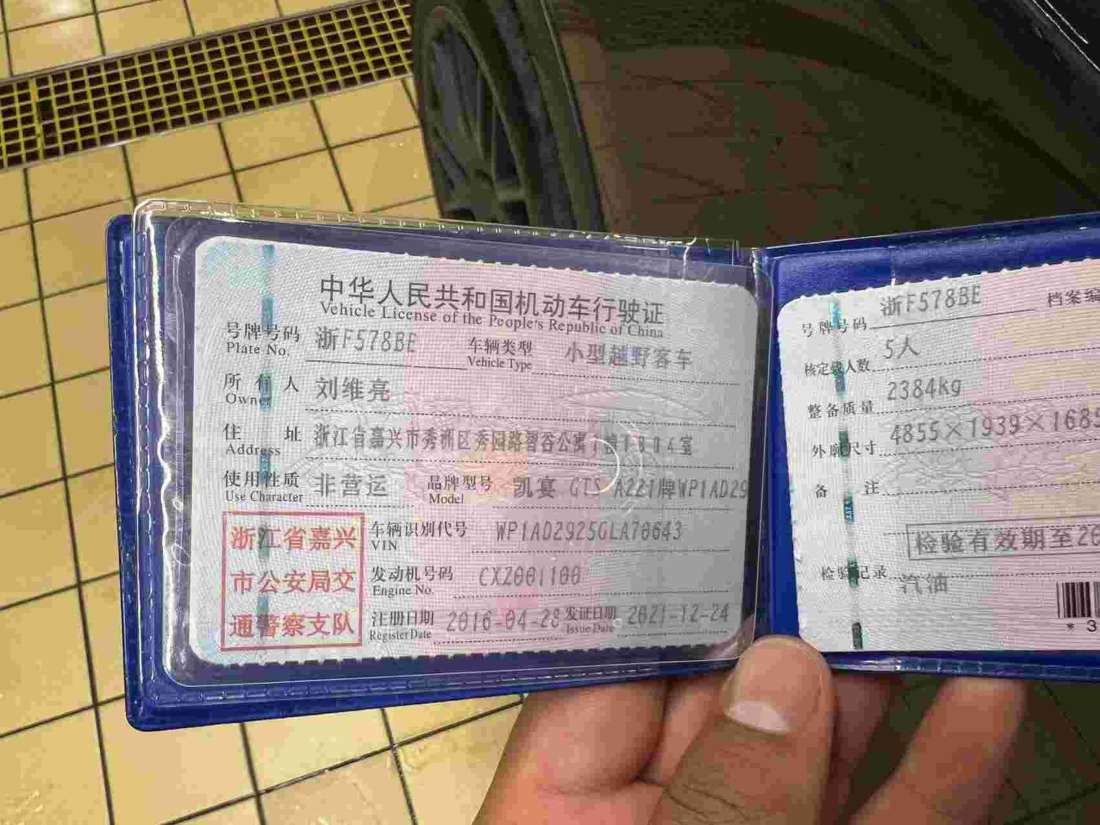 中华人民共和国机动车行驶证
Vehicle License of the People's Republic of China
号牌号码 浙F578BE 车辆类型 小型越野客车
Plate No. Vehicle Type
所有人 刘维亮
Owner
住址 浙江省嘉兴市秀洲区秀园路智谷公寓1幢1804室
Address
使用性质 非营运 品牌型号 凯宴 GTS A221牌WP1AD29
Use Character Model
浙江省嘉兴
市公安局交
通警察支队
车辆识别代号 WP1AD2925GLA70643
VIN
发动机号码 CXZ001100
Engine No.
注册日期 2016-04-28 发证日期 2021-12-24
Register Date Issue Date
号牌号码 浙F578BE 档案编
核定载人数 5人
整备质量 2384kg
外廓尺寸 4855×1939×1689
备注
检验有效期至20
检验记录
汽油
*3